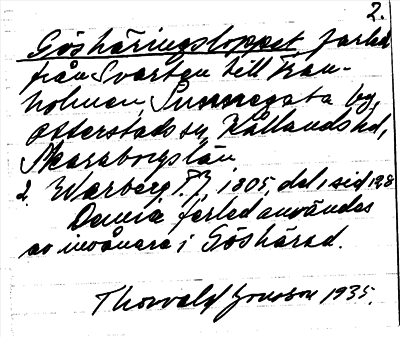 2.
Göshäringsloppet, farled
från Svarten till Tran-
holmen, Sunnegata by,
Otterstads sn, Kållands hd,
Skaraborgs län.
2. Warberg T.J. 1805, del 1 sid 128
Denna farled användes
av invånare i Göshärad.
Thorvald Jonsson 1935.